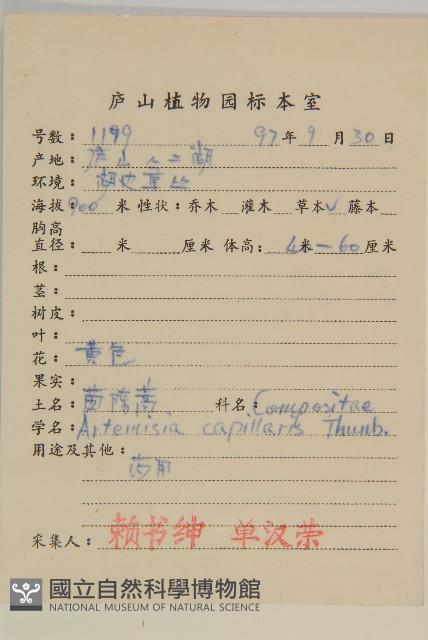 庐山植物园标本室
号数: 1199 97年9月30日
产地: 庐山 人工湖
环境: 湖边草丛
海拔: 900 米 性状: 乔木 灌木 草本✓ 藤本
胸高
直径: 米 厘米 体高: 米 60厘米
根:
茎:
树皮:
叶:
花: 黄色
果实:
土名: 茵陈蒿 科名: Compositae
学名: Artemisia capillaris Thunb.
用途及其他:
药用
采集人: 赖书绅 单汉荣
國立自然科學博物館
NATIONAL MUSEUM OF NATURAL SCIENCE